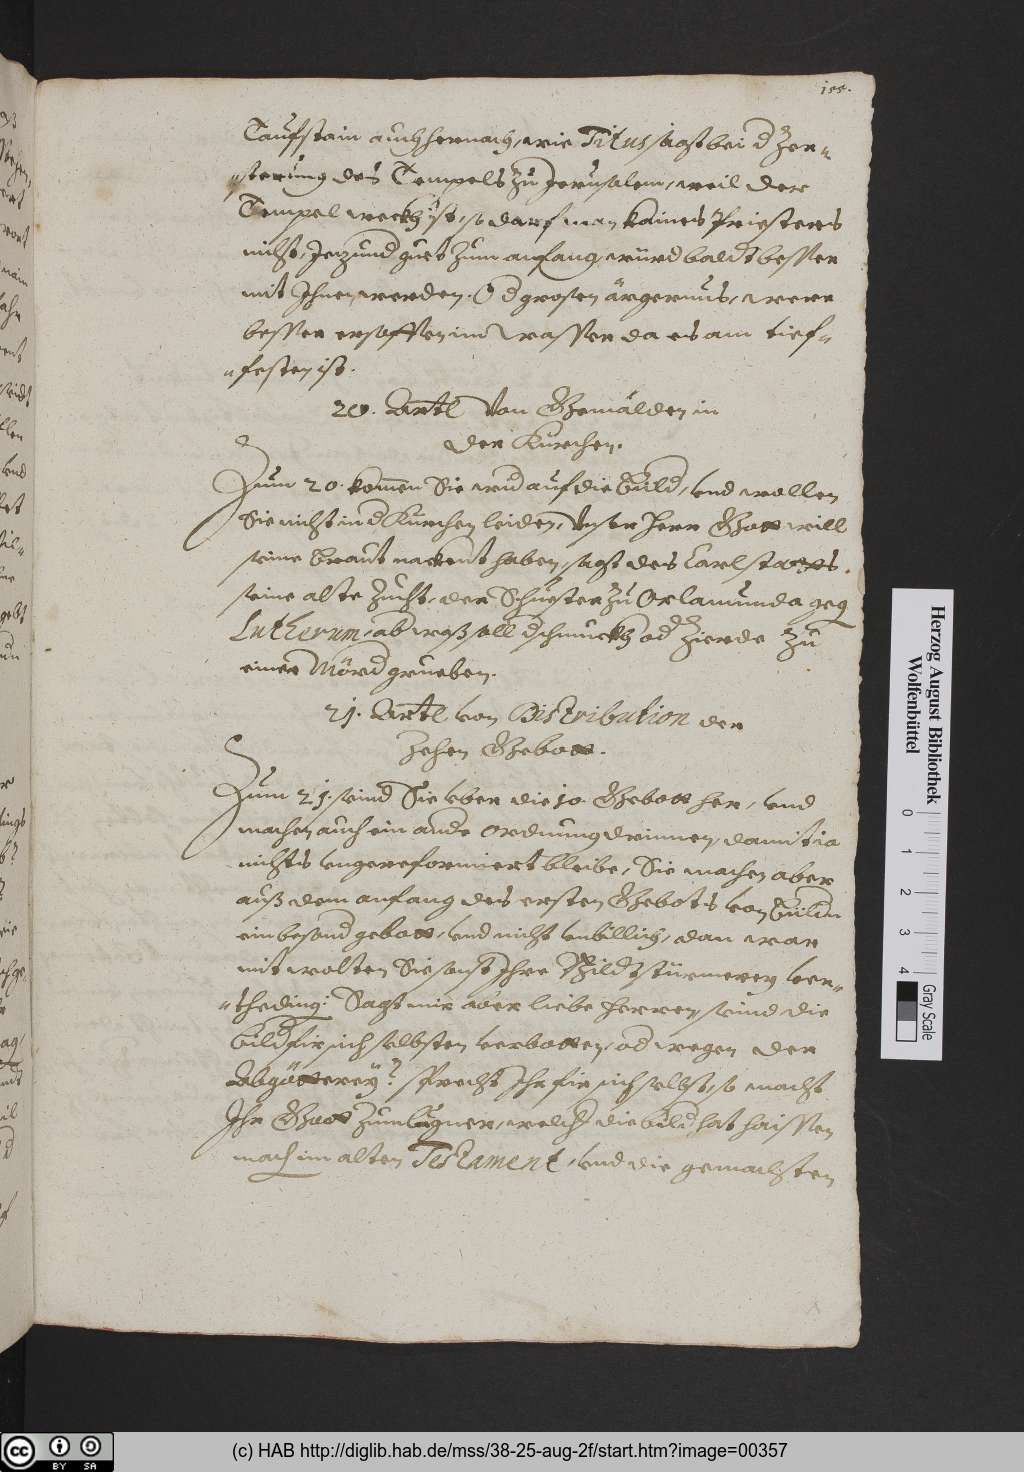 155.
Taufstain auch hernach, wie Titus sagt bei d Zer-
sterung des Tempels zu Jerusalem, weil der
Tempel weckh ist, so darf man kaines Priesters
nicht, Jezund guet zum anfang, würd baldt besser
mit Ihnen werden. O d grosen ärgernus, were
besser ersoffen im wasser da es am tief-
festen ist.
20. Artl Von Gemälden in
der Kürchen.
Zum 20. kommen Sie wid auf die Bild, vnd wollen
Sie nicht in d Kürchen leiden, Vnser Herr Gott will
seine Braut nackent haben, sagt des Carlstatts
seine alte Zucht, der Schuester zu Orlamunda geg
Lutherum, ab wegs all d schmuckh od Zierde zu
einer Mördgrueben.
21. Artl von Distribution der
Zehen Gebott.
Zum 21. seind Sie vber die 10. Gebott her, vnd
machen auch ein ande ordnung drinnen, damit ia
nichts vngereformiert bleibe, Sie machen aber
auß dem anfang des ersten Gebots von Bildn
ein besond gebott, vnd nicht vnbillich, dan war
mit wolten Sie sonst Ihre Bildtstürmerey ver-
theding: Sagt mir aber liebe Herren, seind die
Bild für sich selbsten verbotten, od wegen der
Abgötterey? Sprecht Ihr für sich selbst, so macht
Ihr Gott zum lügner, welch die bild hat haissen
mach im alten Testament, vnd die gemachten
Herzog August Bibliothek
Wolfenbüttel
0 1 2 3 4
Gray Scale
(c) HAB http://diglib.hab.de/mss/38-25-aug-2f/start.htm?image=00357
cc BY SA